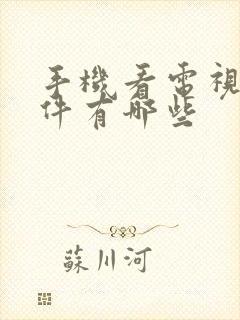 手機看電視
件有哪些
蘇川河